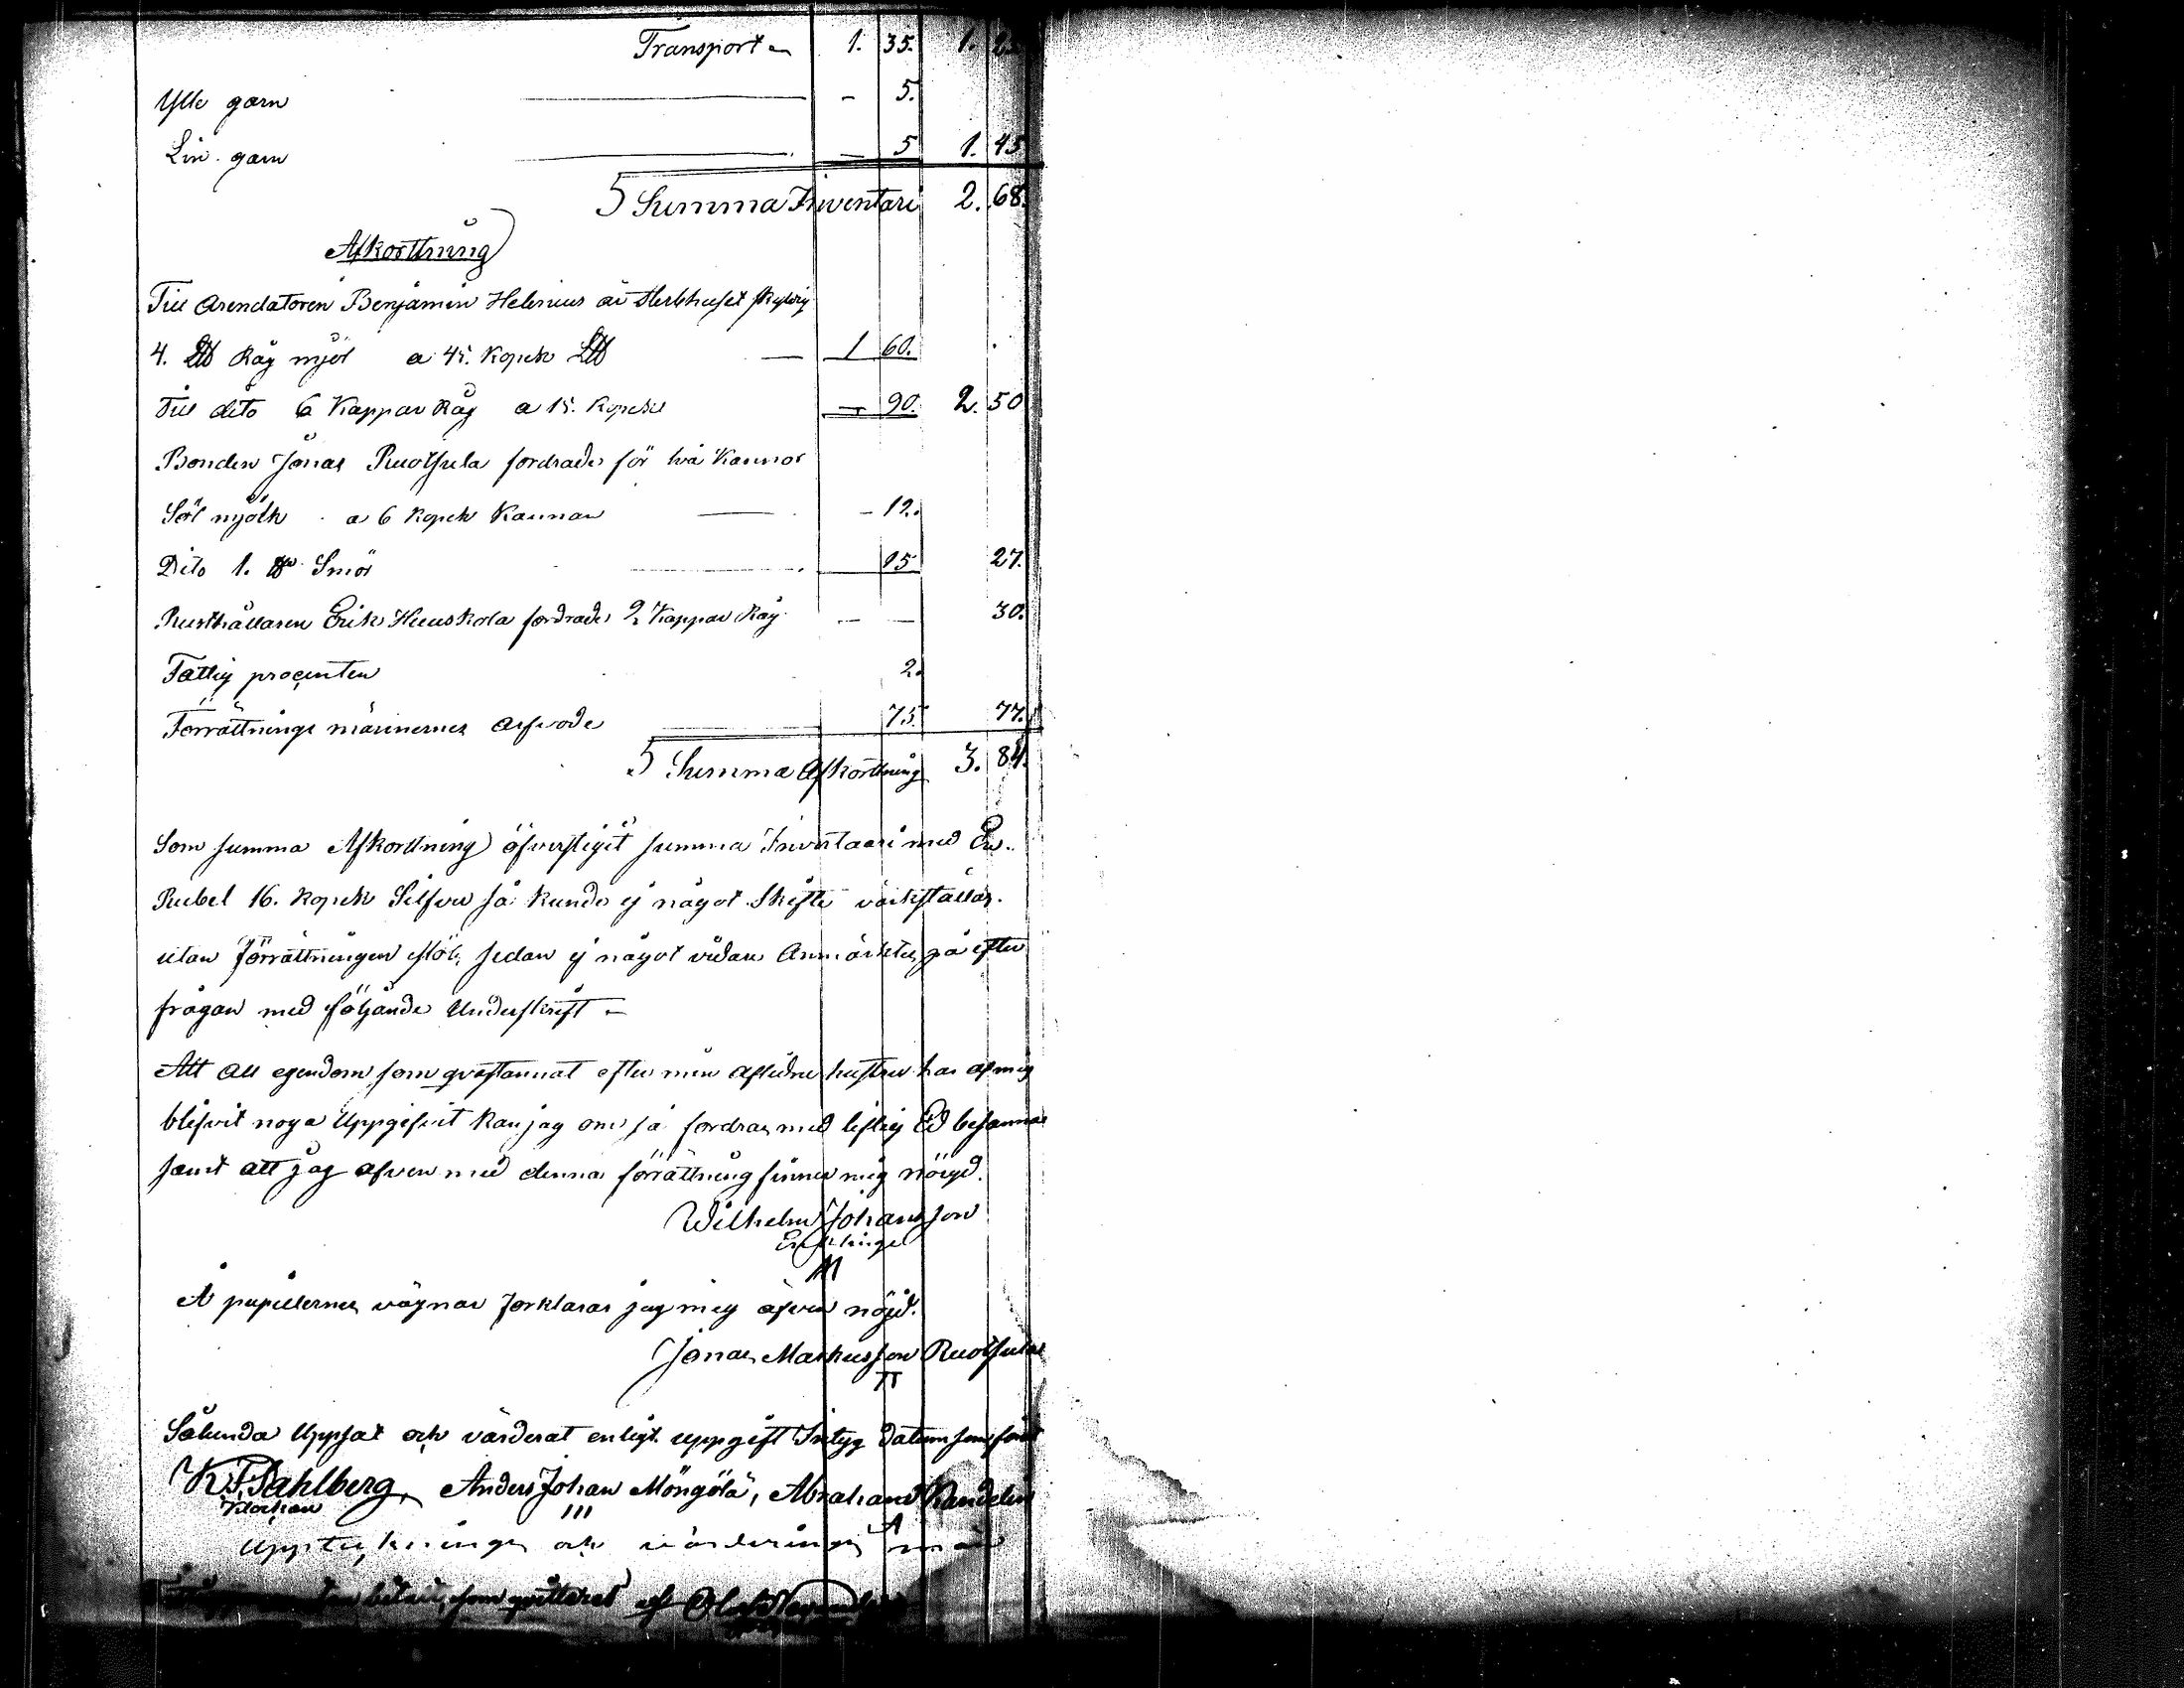 Transport 1. 35. 1.
Ylle garn - 5.
Lin garn - 5 1. 45
Summa Inventari 2. 68.
Afkorttning
Till Arendatoren Benjamin Helenius är Sterbhuset skyldig
4. LU Råg mjöl a 45. Kopek LU 1 60.
Till dito 6 Kappar Råg a 15. Kopek - 90. 2. 50
Bonden Jonas Ruotsula fordrade för två Kannor
Söt mjölk a 6 Kopek Kannan - 12.
Dito 1. U Smör 15 27.
Rusthållaren Erik Huuskola fordrade 2 Kappar Råg - - 30.
Fattig procenten 2.
Förrättnings männernes Arfvode 75. 77.
Summa Afkorttning 3. 84.
Som summa Afkorttning öfverstigit summa Inventaari med En
Rubel 16. Kopek Silfver så kunde ej något Skifte värkställas.
utan Förrättningen slöts, sedan ej något vidare Anmärktes på efter
frågan med följande Underskrift -
Att All egendom som qvarstannat efter min aflidne hustru har af mig
blifvit noga Uppgifvit kan jag om så fordras med liflig Ed besanna
samt att jag afven med denna förrättning finner mig nöigd.
Wilhelm Johansson
Enklinge
A pupillernes vägnar förklarar jag mig äfven nöjd.
Jonas Markusson Ruotsula
Sålunda Uppsat och värderat enligt uppgift Intyg Datum som förut
K. F. Dahlberg, Anders Johan Möngölä, Abraham Randelin
Klockare
III
Uppteckninge och värderings män
som qvitteras af